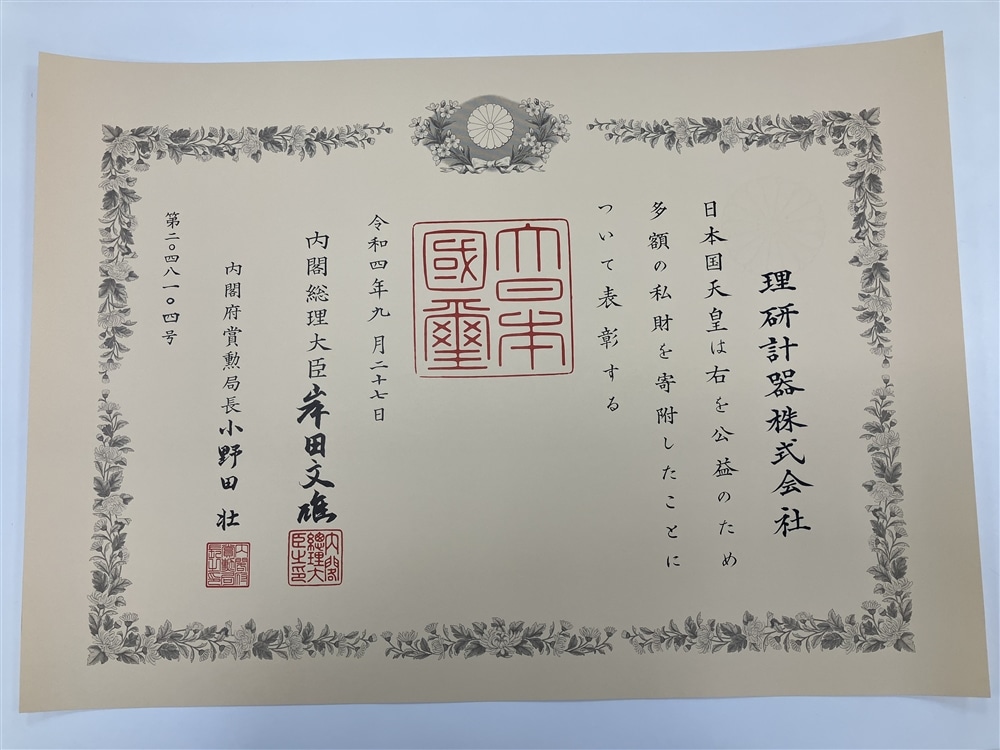 理研計器株式会社
日本国天皇は右を公益のため
多額の私財を寄附したことに
ついて表彰する
大日本
國璽
令和四年九月二十七日
内閣総理大臣岸田文雄
内閣總理大臣之印
内閣府賞勲局長小野田壮
第二〇四八一〇四号